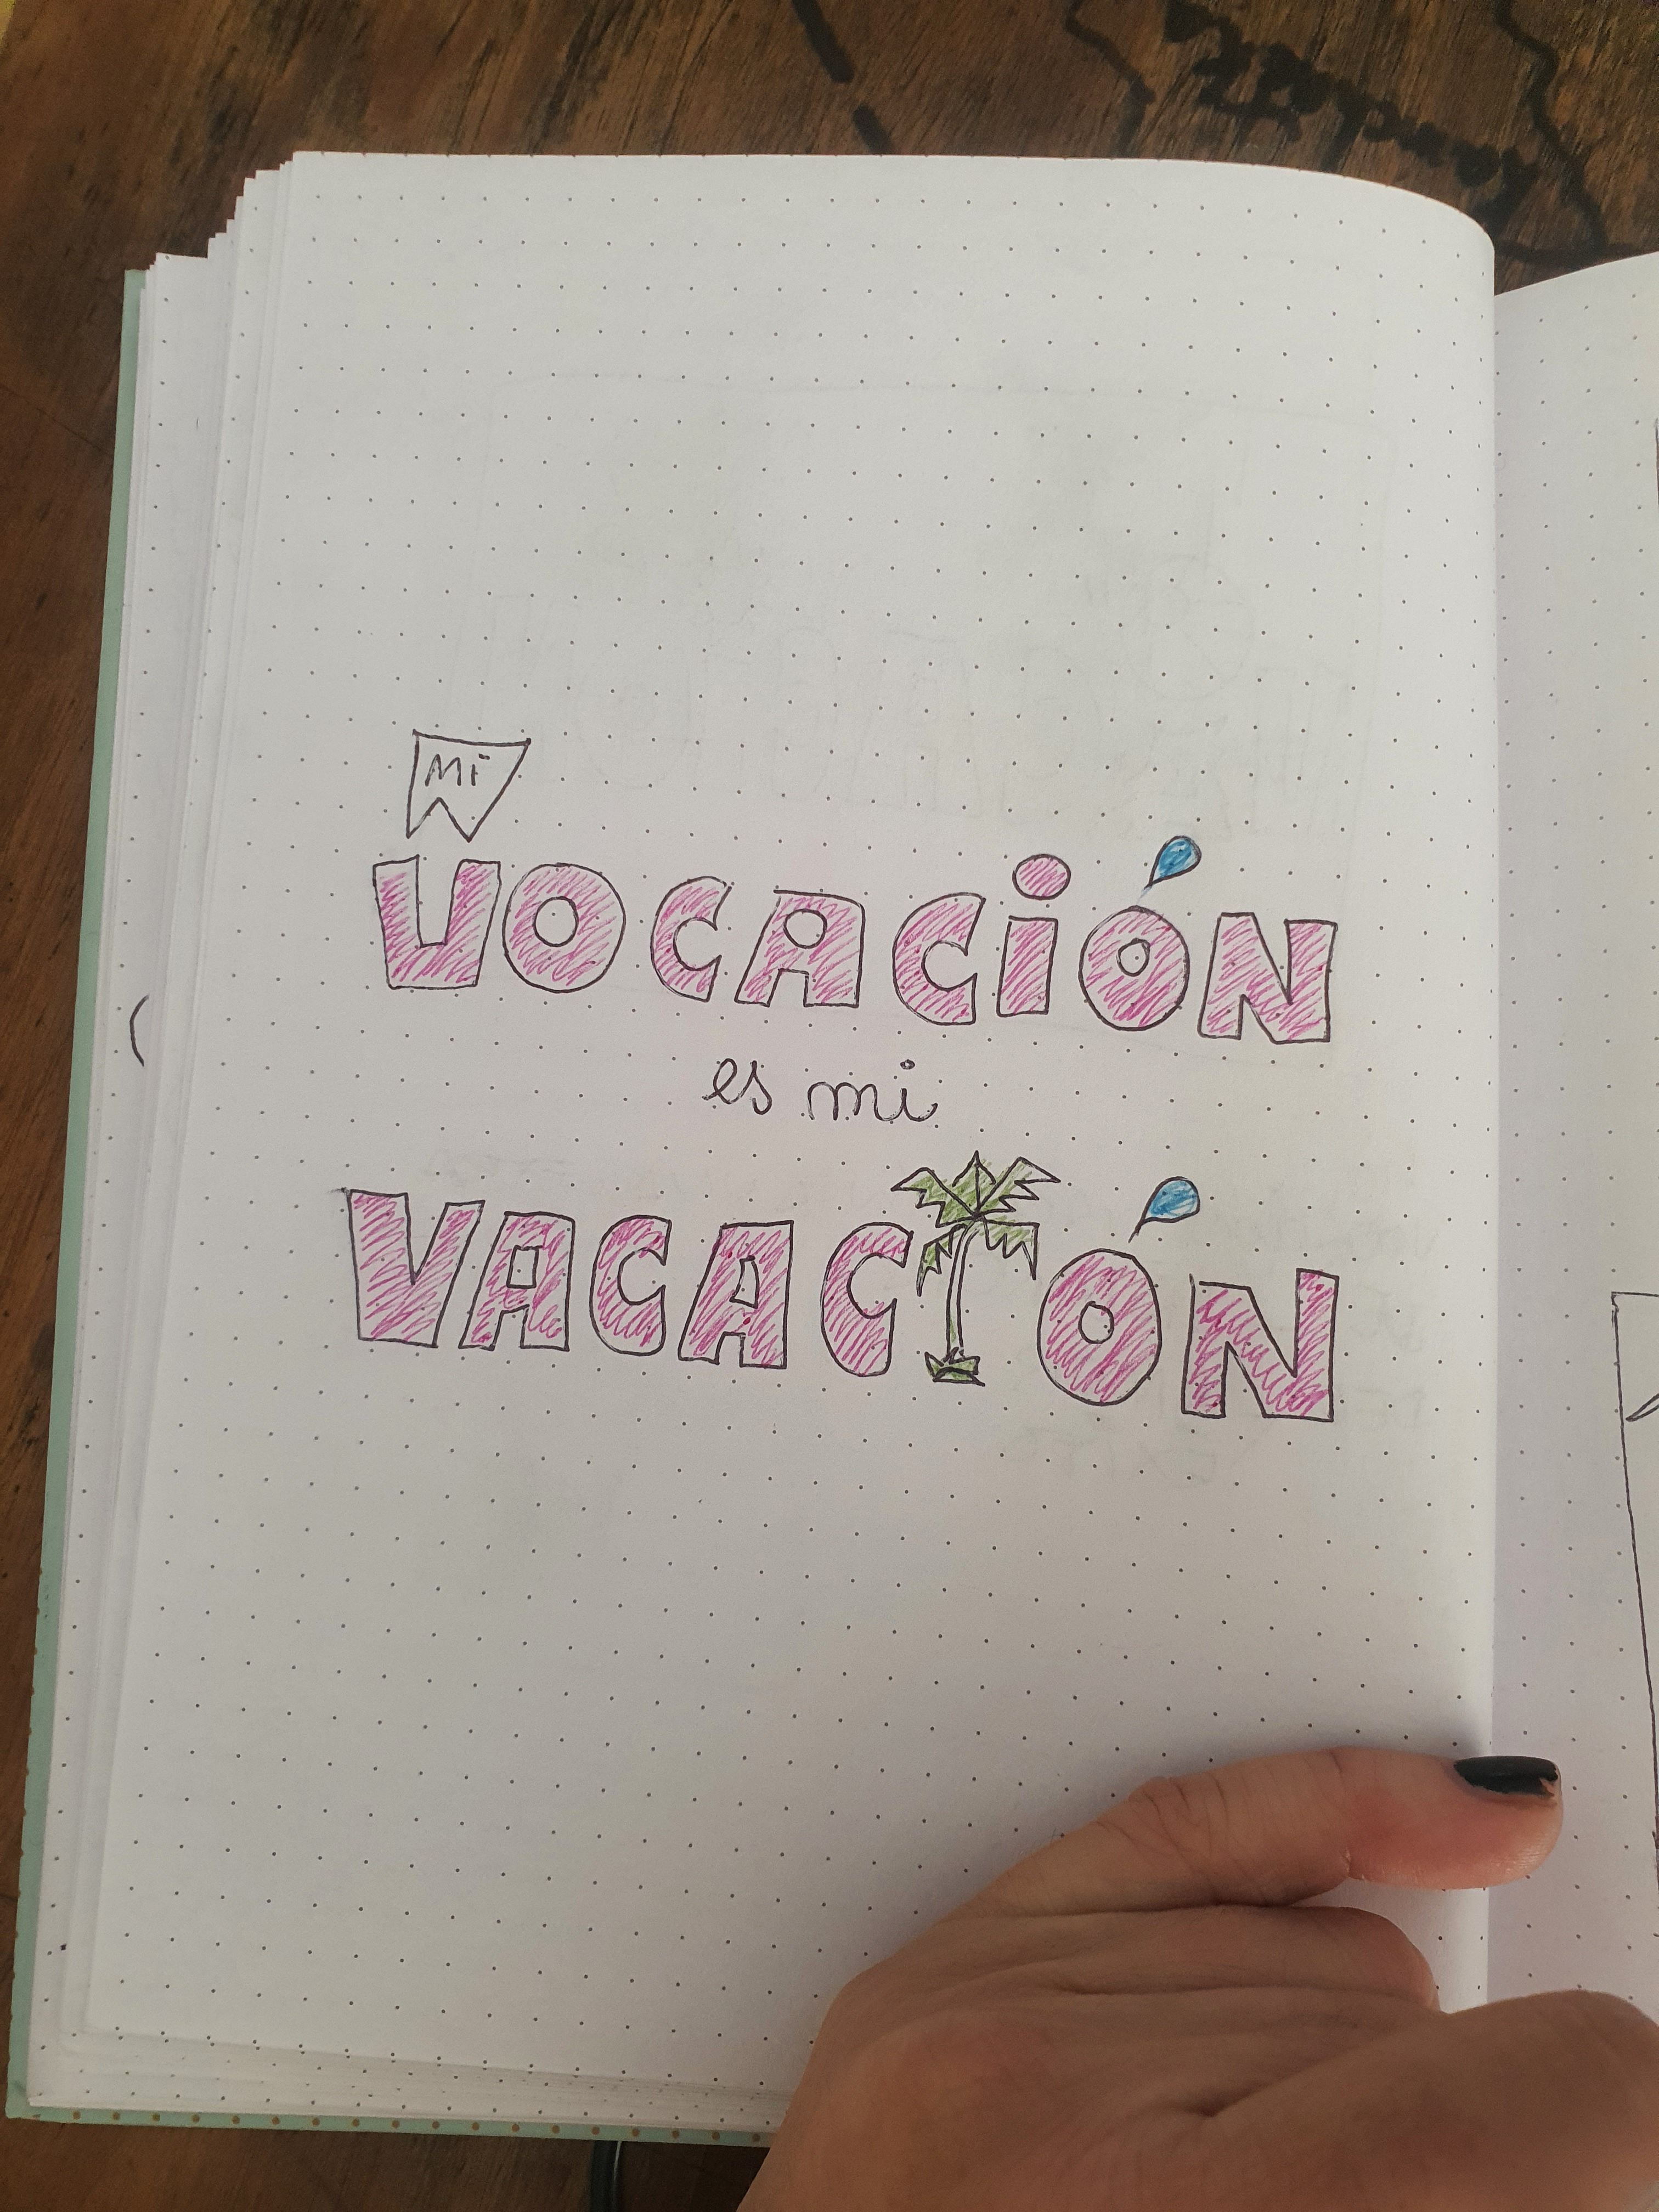 Mi
VOCACiÓN
es mi
VACACIÓN